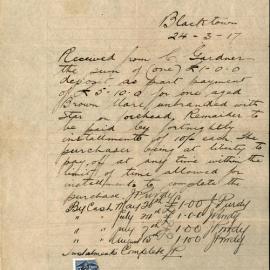 Blacktown
24-3-17
Received from C Gardner
the sum of (one) £1-0-0
deposit as part payment
of £5-10-0 for one aged
Brown Mare unbranded with
Star on forehead, Remainder to
be paid by fortnightly
installments of 10/- each. The
purchaser being at liberty to
pay off at any time within the
limit of time allowed for
installments to complete the
purchase
By Cash May 30th £1.00 J Purdy
" " July 24th £1.00
" " July 7th £1.00
" " August 15th £1.00
Instalments Complete